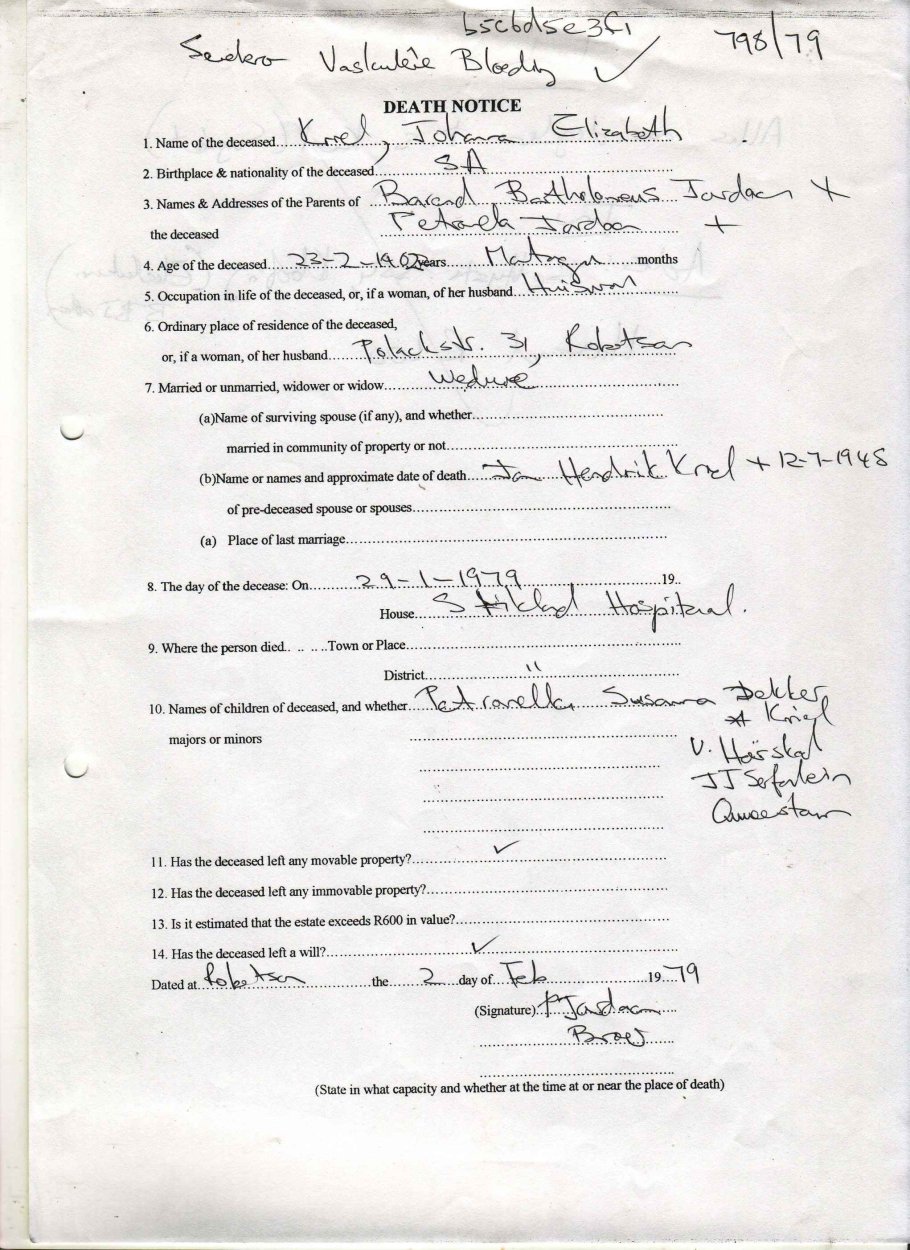 b5cbd5e3f1
798/79
Vaskulêre Bloeding ✓
DEATH NOTICE
1. Name of the deceased....Kriel, Johanna Elizabeth
2. Birthplace & nationality of the deceased....SA
3. Names & Addresses of the Parents of ....Barend Bartholomeus Jordaan +
the deceased ....Petronella Jordaan +
4. Age of the deceased....23-2-1902 years....months
5. Occupation in life of the deceased, or, if a woman, of her husband....Huisvrou
6. Ordinary place of residence of the deceased,
or, if a woman, of her husband....Polackstr. 31, Robertson
7. Married or unmarried, widower or widow....Weduwe
(a)Name of surviving spouse (if any), and whether....
married in community of property or not....
(b)Name or names and approximate date of death....Jan Hendrik Kriel + 12-7-1948
of pre-deceased spouse or spouses....
(a) Place of last marriage....
8. The day of the decease: On....29-1-1979....19..
House....Stikland Hospitaal.
9. Where the person died.. .. ..Town or Place....
District....''
10. Names of children of deceased, and whether....Petronella Susanna Dekker
Kriel
majors or minors
V. Hörskol
JJ Serfontein
Queenstown
11. Has the deceased left any movable property?....✓
12. Has the deceased left any immovable property?....
13. Is it estimated that the estate exceeds R600 in value?....
14. Has the deceased left a will?....✓
Dated at....Robertson....the....2....day of....Feb....1979
(Signature)....Jordaan
Broer
(State in what capacity and whether at the time at or near the place of death)